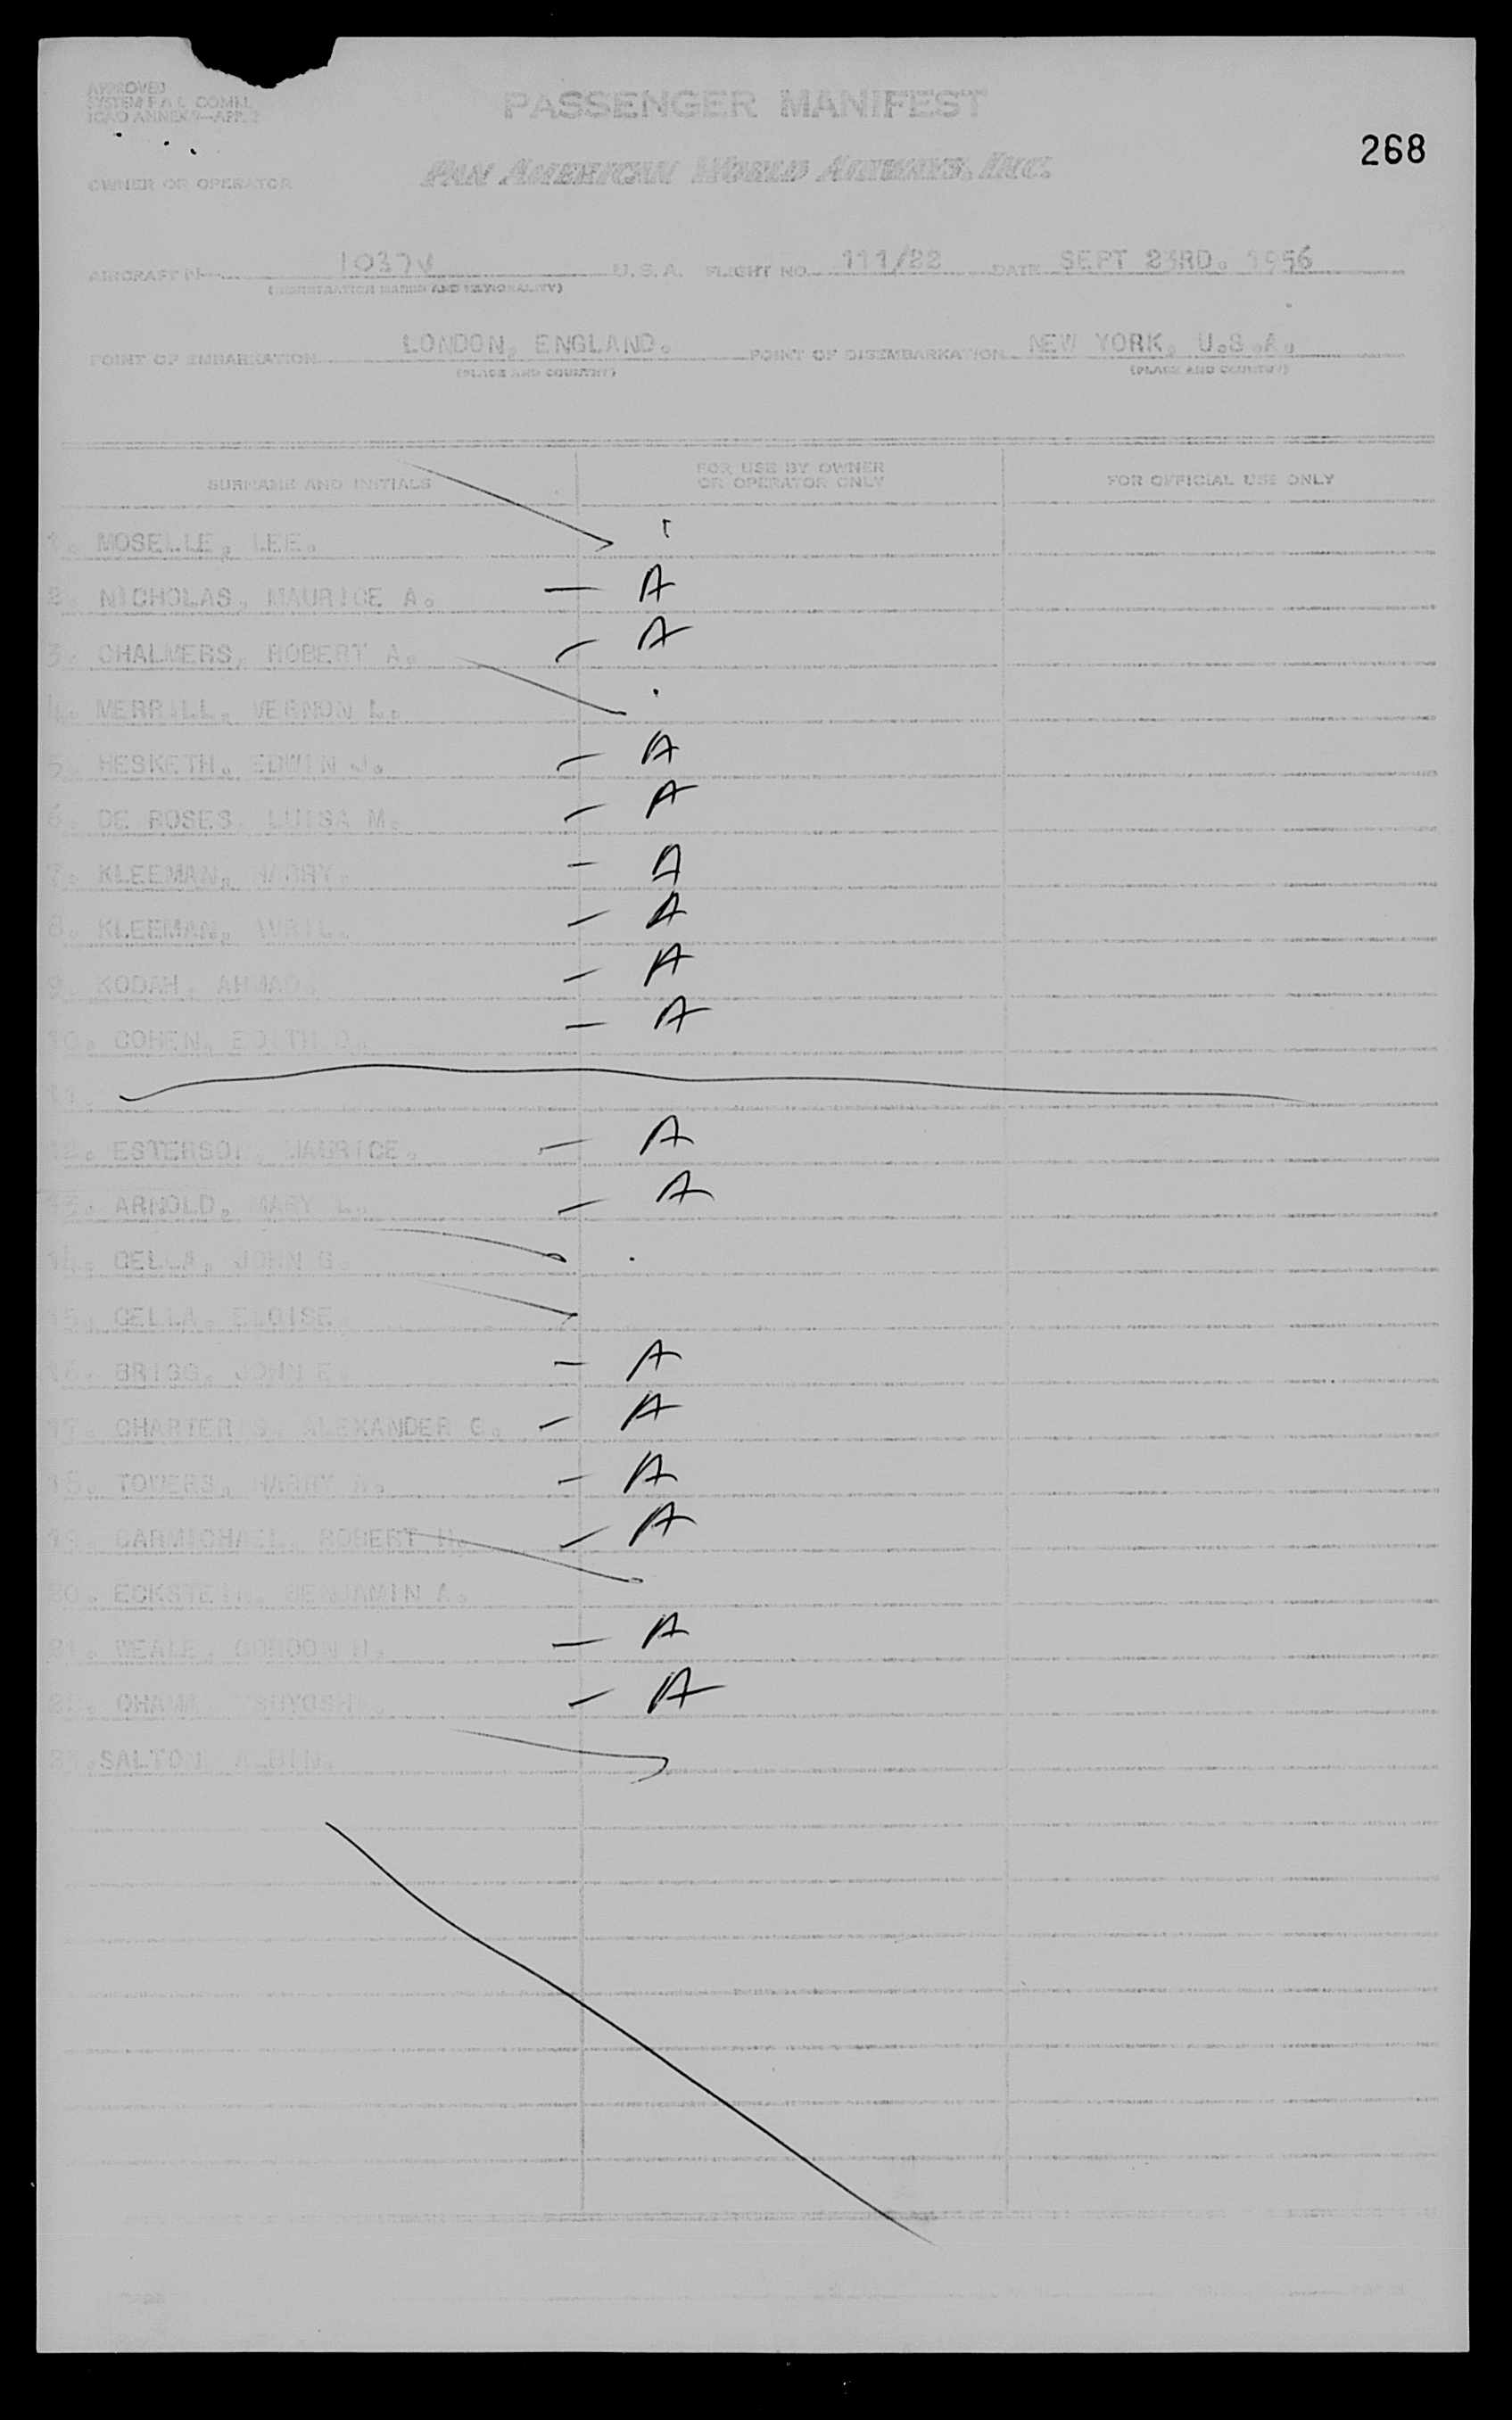 APPROVED
SYSTEM F.A.L. COMM.
ICAO ANNEX 9—APP. 2
PASSENGER MANIFEST
268
PAN AMERICAN WORLD AIRWAYS, INC.
OWNER OR OPERATOR
AIRCRAFT N 1037V U. S. A. FLIGHT NO. 111/22 DATE SEPT 23RD. 1956
(REGISTRATION MARKS AND NATIONALITY)
POINT OF EMBARKATION LONDON, ENGLAND. POINT OF DISEMBARKATION NEW YORK, U.S.A.
(PLACE AND COUNTRY) (PLACE AND COUNTRY)
SURNAME AND INITIALS FOR USE BY OWNER OR OPERATOR ONLY FOR OFFICIAL USE ONLY
1. MOSELLE, LEE.
2. NICHOLAS, MAURICE A. — A
3. CHALMERS, ROBERT A. — A
4. MERRILL, VERNON L.
5. HESKETH, EDWIN J. — A
6. DE ROSES, LUISA M. — A
7. KLEEMAN, HARRY. — A
8. KLEEMAN, AVRIL. — A
9. KODAH, AHMAD. — A
10. COHEN, EDITH — A
11.
12. ESTERSON, MAURICE. — A
13. ARNOLD, MARY L. — A
14. CELLA, JOHN G.
15. CELLA, ELOISE
16. BRIGG, JOHN E. — A
17. CHARTERIS, ALEXANDER G. — A
18. TOWERS, HARRY A. — A
19. CARMICHAEL, ROBERT H. — A
20. ECKSTEIN, BENJAMIN A.
21. WEALE, GORDON H. — A
22. OHAMA, TSUYOSHI. — A
23. SALTON, ALBIN.